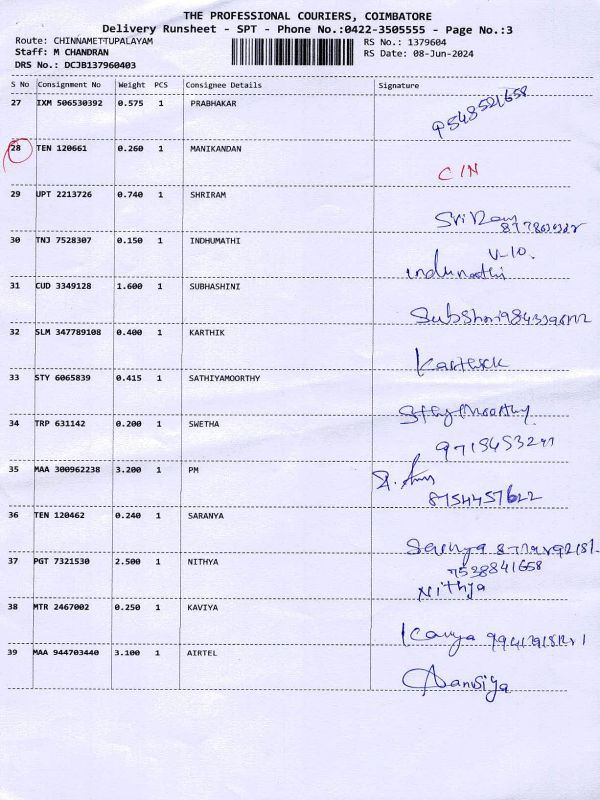 THE PROFESSIONAL COURIERS, COIMBATORE
Delivery Runsheet - SPT - Phone No.:0422-3505555 - Page No.:3
Route: CHINNAMETTUPALAYAM RS No.: 1379604
Staff: M CHANDRAN RS Date: 08-Jun-2024
DRS No.: DCJB137960403
S No Consignment No Weight PCS Consignee Details Signature
27 IXM 506530392 0.575 1 PRABHAKAR
9548521658
28 TEN 120661 0.260 1 MANIKANDAN
C/N
29 UPT 2213726 0.740 1 SHRIRAM
Sri Ram
30 TNJ 7528307 0.150 1 INDHUMATHI
V-10.
indumathi
31 CUD 3349128 1.600 1 SUBHASHINI
32 SLM 347789108 0.400 1 KARTHIK
Karthick
33 STY 6065839 0.415 1 SATHIYAMOORTHY
34 TRP 631142 0.200 1 SWETHA
35 MAA 300962238 3.200 1 PM
8754457622
36 TEN 120462 0.240 1 SARANYA
37 PGT 7321530 2.500 1 NITHYA
7538841658
Nithya
38 MTR 2467002 0.250 1 KAVIYA
Kavya
39 MAA 944703440 3.100 1 AIRTEL